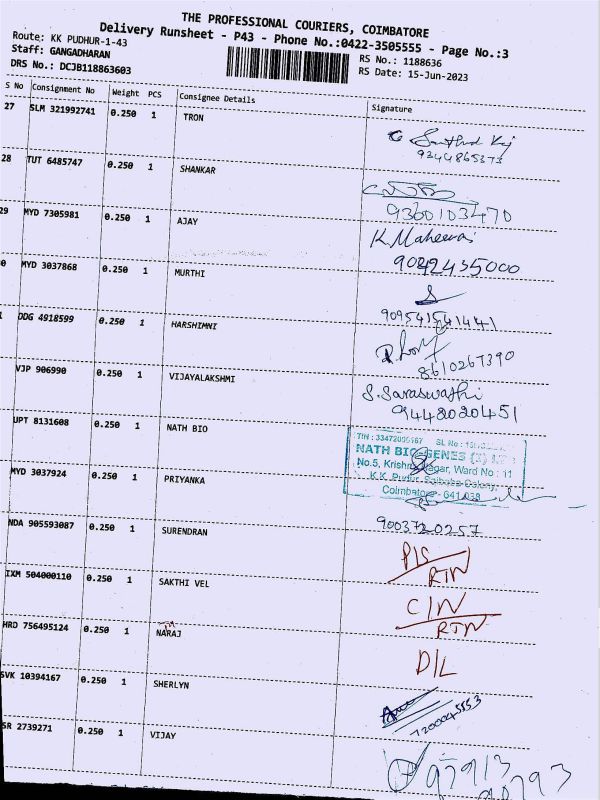 THE PROFESSIONAL COURIERS, COIMBATORE
Delivery Runsheet - P43 - Phone No.:0422-3505555 - Page No.:3
Route: KK PUDHUR-1-43
Staff: GANGADHARAN
DRS No.: DCJB118863603
RS No.: 1188636
RS Date: 15-Jun-2023
S No Consignment No Weight PCS Consignee Details Signature
27 SLM 321992741 0.250 1 TRON
9344865373
28 TUT 6485747 0.250 1 SHANKAR
9360103470
29 MYD 7305981 0.250 1 AJAY
K. Maheswari
9042435000
0 MYD 3037868 0.250 1 MURTHI
909541541441
DDG 4918599 0.250 1 HARSHIMNI
8610267390
VJP 906990 0.250 1 VIJAYALAKSHMI
S. Saraswathi
9448020451
UPT 8131608 0.250 1 NATH BIO
NATH BIO-GENES (I)
No.5, Krishna Nagar, Ward No : 11
K.K. Pudur, Saibaba Colony,
Coimbatore - 641 038
MYD 3037924 0.250 1 PRIYANKA
9003720257
NDA 905593087 0.250 1 SURENDRAN
RTN
IXM 504000110 0.250 1 SAKTHI VEL
C/N
RTN
HRD 756495124 0.250 1 NARAJ
D/L
SVK 10394167 0.250 1 SHERLYN
7200045553
SR 2739271 0.250 1 VIJAY
97913